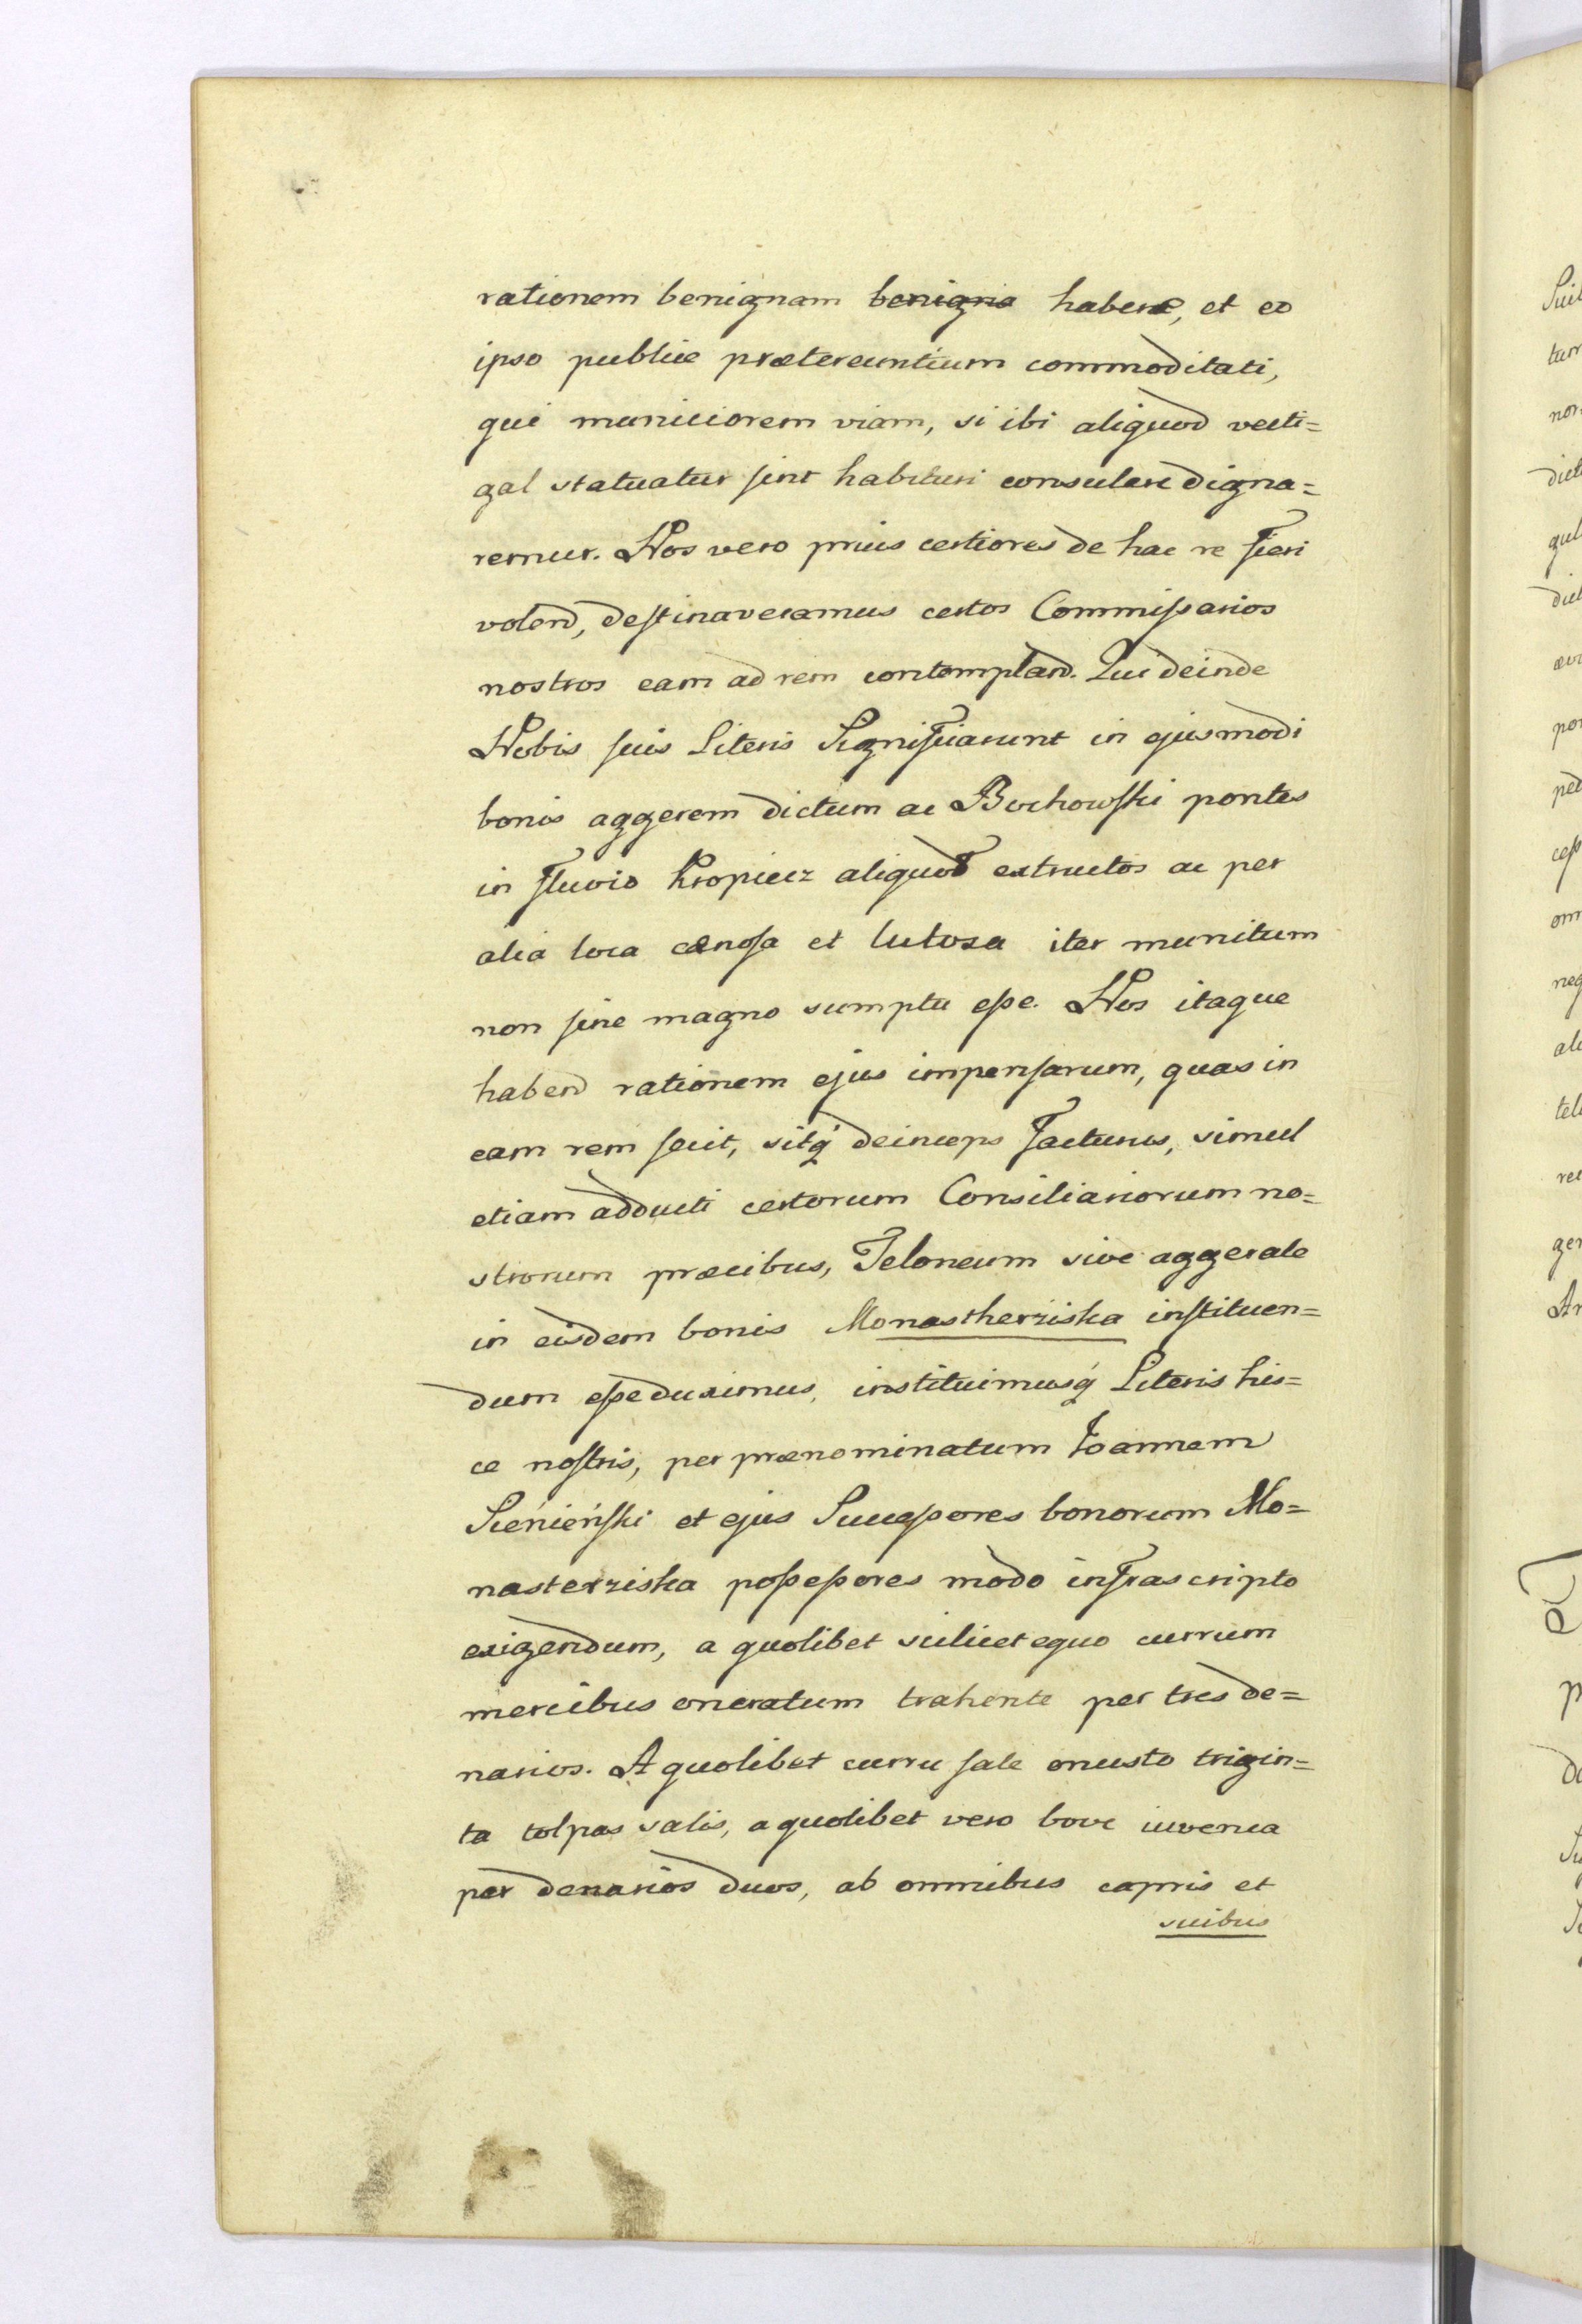 rationem benignam benigna habere, et eo
ipso publice prætereuntium commoditati,
qui municiorem viam, si ibi aliquod vecti=
gal statuatur sint habituri consulere digna=
remur. Nos vero prius certiores de hac re fieri
volend, destinaveramus certos Commissarios
nostros eam ad rem contempland. Qui deinde
Nobis suis Literis Significarunt in ejusmodi
bonis aggerem dictum ac Buchowski pontes
in fluvio Kropiecz aliquod extructos ac per
alia loca cænosa et lutosa iter munitum
non sine magno sumptu esse. Nos itaque
habend rationem ejus impensarum, quas in
eam rem fecit, sitq́ deinceps facturus, simul
etiam adducti certorum Consiliariorum no=
strorum præcibus, Teloneum sive aggerale
in eisdem bonis Monastherziska instituen=
dum esse duximus, instituimusq́ Literis his=
ce nostris, per prænominatum Joannem
Siénieński et ejus Successores bonorum Mo=
nasterziska possessores modo infrascripto
exigendum, a quolibet scilicet equo currum
mercibus oneratum trahente per tres de=
narios. A quolibet curru sale onusto trigin=
ta tolpas salis, a quolibet vero bove iuvenca
per denarios duos, ab omnibus capris et
suibus